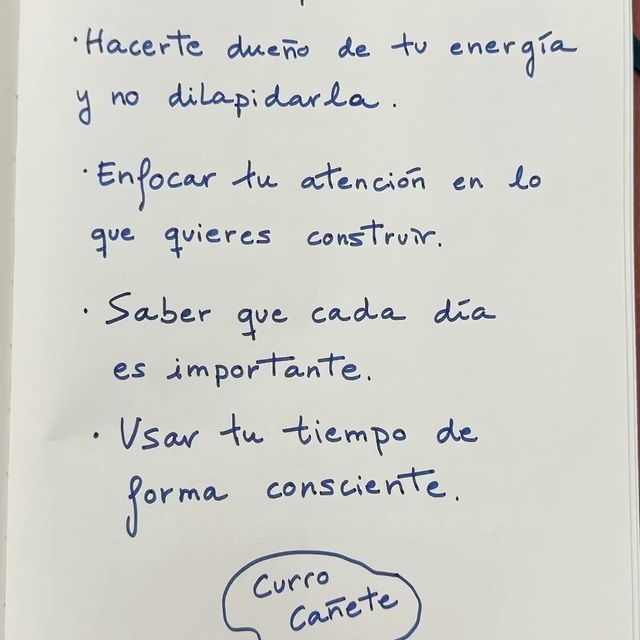 · Hacerte dueño de tu energía
y no dilapidarla.
· Enfocar tu atención en lo
que quieres construir.
· Saber que cada día
es importante.
· Usar tu tiempo de
forma consciente.
Curro
Cañete